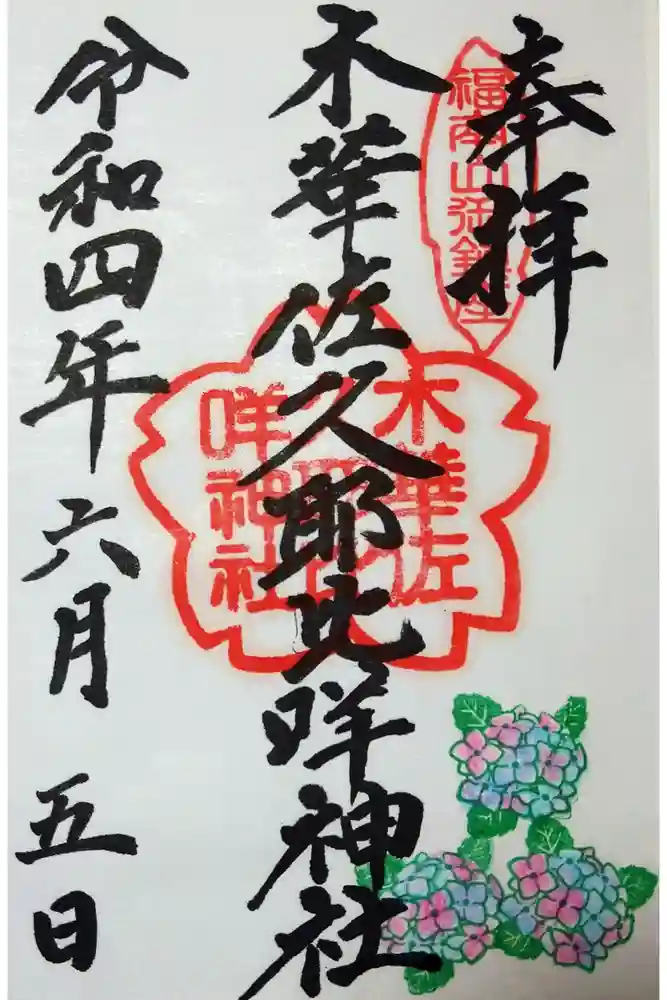 奉拝
木華佐久耶比咩神社
令和四年六月五日
福南山御鎮座
木華佐
咩神社